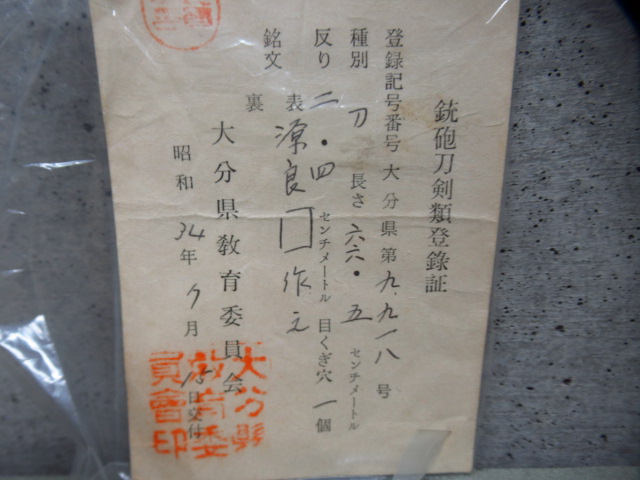 銃砲刀剣類登録証
登録記号番号 大分県第九、九一八号
種別 刀 長さ 六六・五 センチメートル
反り 二・四 センチメートル 目くぎ穴 一個
銘文 表 源良□作之
裏
大分県教育委員会
昭和34年9月15日交付
大分縣
教育委
員會印